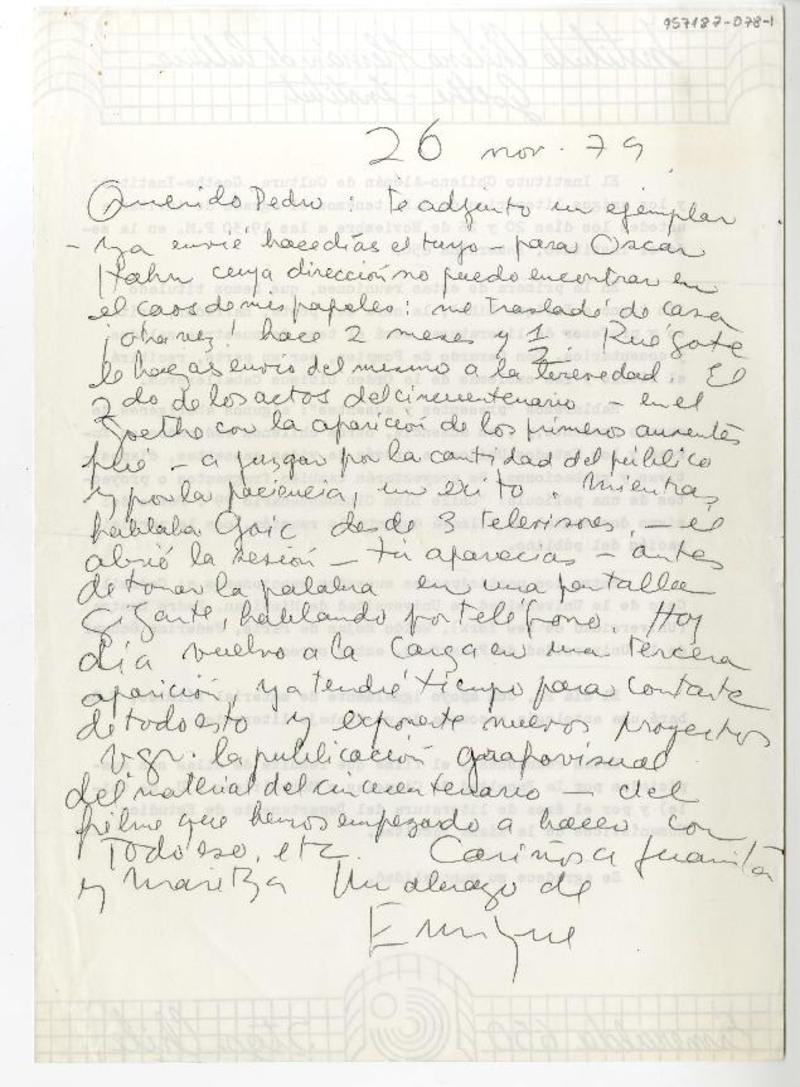 957187-078-1
26 nov. 79
Querido Pedro: te adjunto un ejemplar
- ya envié hace días el tuyo - para Oscar
Hahn cuya dirección no puedo encontrar en
el caos de mis papeles: me trasladé de casa
¡otra vez! hace 2 meses y 1/2. Ruégote
le hagas envío del mismo a la brevedad. El
2do de los actos del cincuentenario - en el
Goethe con la aparición de los primeros ausentes
fué - a juzgar por la cantidad del público
y por la paciencia, un exito. Mientras
hablaba Goic desde 3 televisores, - él
abrió la sesión - tú aparecías - antes
de tomar la palabra en una pantalla
gigante, hablando por teléfono. Hoy
día vuelvo a la carga en una tercera
aparición, ya tendré tiempo para contarte
de todo esto y exponerte nuevos proyectos
vgr. la publicación grafovisual
del material del cincuentenario - del
filme que hemos empezado a hacer con
todo eso, etc. Cariños a Juanita
y Maritza Un abrazo de
Enrique